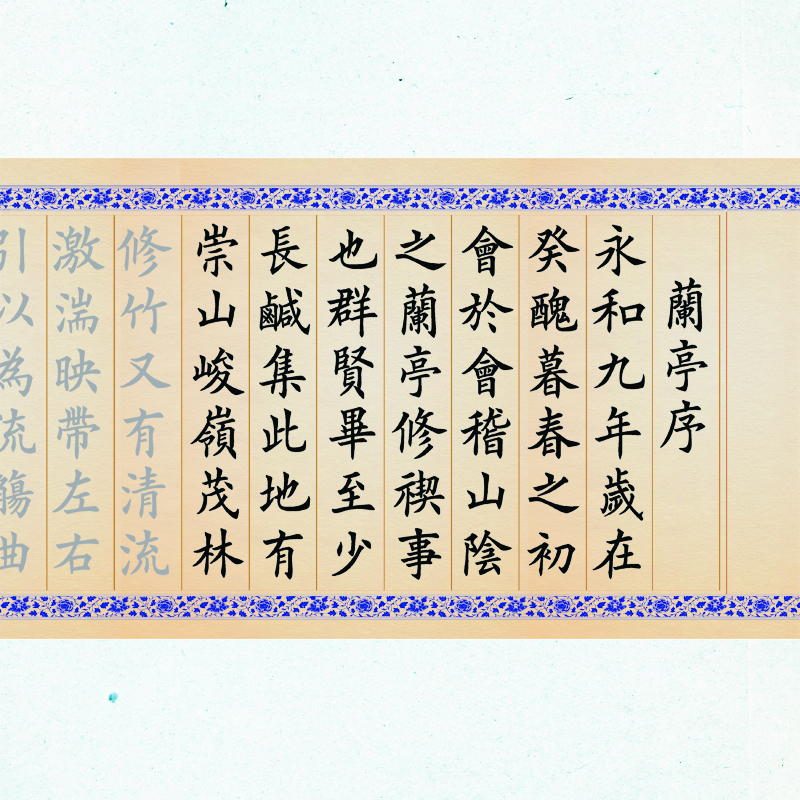 蘭亭序
永和九年歲在
癸醜暮春之初
會於會稽山陰
之蘭亭修禊事
也群賢畢至少
長鹹集此地有
崇山峻嶺茂林
修竹又有清流
激湍映帶左右
引以為流觴曲